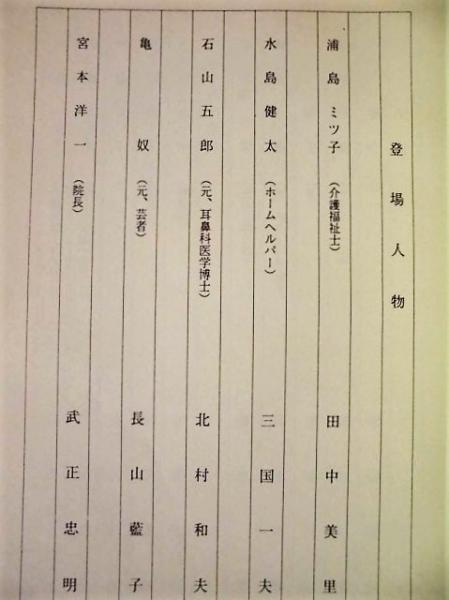 登場人物
浦島ミツ子（介護福祉士） 田中美里
水島健太（ホームヘルパー） 三国一夫
石山五郎（元、耳鼻科医学博士） 北村和夫
亀奴（元、芸者） 長山藍子
宮本洋一（院長） 武正忠明